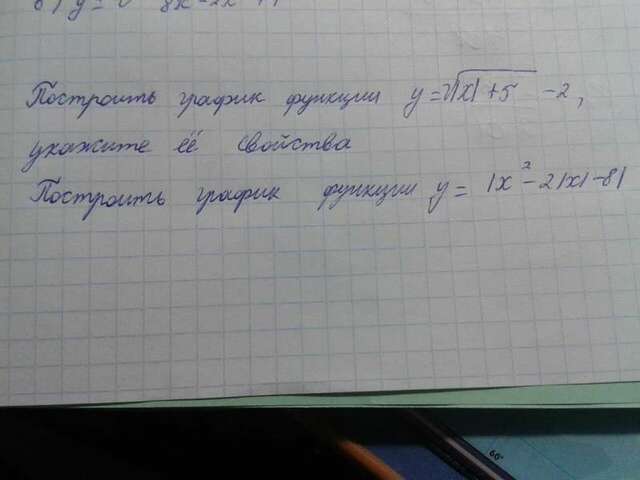 Построить график функции y=√|x|+5 -2,
укажите её свойства
Построить график функции y= |x²-2|x|-8|
60°